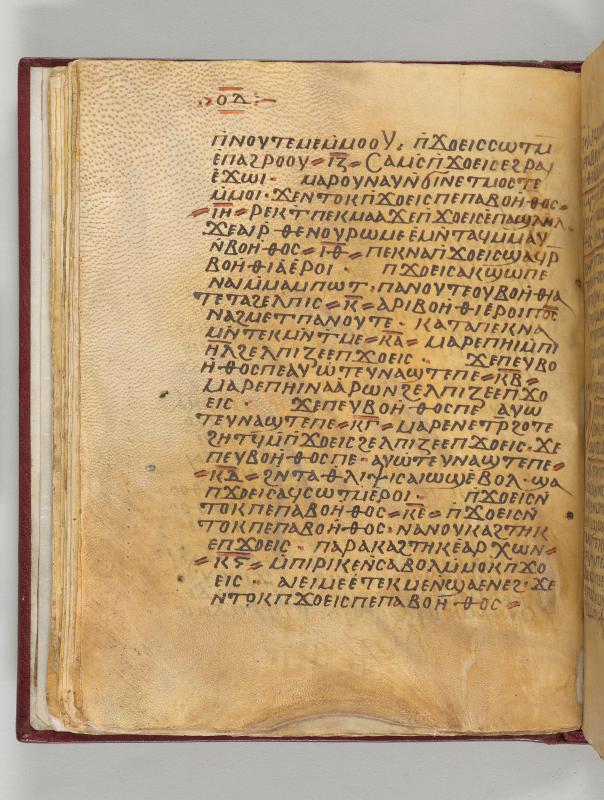 ⲟⲇ
ⲡ̇ⲛⲟⲩⲧⲉⲙⲉⲙ̇ⲙⲟⲟⲩ· ⲡ̇ϫⲟⲉⲓⲥⲥⲱⲧⲙ
ⲉ̇ⲡⲁϩⲣⲟⲟⲩ ⲓⲍ ⲥⲁⲙ̇ⲥⲡ̇ϫⲟⲉⲓⲥⲉϩⲣⲁⲓ
ⲉ̇ϫⲱⲓ· ⲙⲁⲣⲟⲩⲛⲁⲩⲛ̇ϭⲓⲛⲉⲧⲙⲟⲥⲧⲉ
ⲙ̇ⲙⲟⲓ· ϫⲉⲛⲧⲟⲕⲡ̇ϫⲟⲉⲓⲥⲡⲉⲡⲁⲃⲟⲏ̇ⲑⲟⲥ
ⲓⲏ ⲣⲉⲕⲧⲡⲉⲕⲙⲁⲁϫⲉⲡ̇ϫⲟⲉⲓⲥⲉ̇ⲡⲁϣⲗⲏⲗ
ϫⲉⲁⲓⲣ̇ⲑⲉⲛⲟⲩⲣⲱⲙⲉⲉⲙ̇ⲛ̇ⲧⲁϥⲙ̇ⲙⲁⲩ
ⲛ̇ⲃⲟⲏ̇ⲑⲟⲥ ⲓⲑ ⲡⲉⲕⲛⲁⲡ̇ϫⲟⲉⲓⲥϣⲁϥⲣ
ⲃⲟⲏ̇ⲑⲓⲁ̇ⲉ̇ⲣⲟⲓ· ⲡ̇ϫⲟⲉⲓⲥⲁⲕϣⲱⲡⲉ
ⲛⲁⲓⲙ̇ⲙⲁⲙ̇ⲡⲱⲧ· ⲡⲁⲛⲟⲩⲧⲉⲟⲩⲃⲟⲏ̇ⲑⲓⲁ
ⲧⲉⲧⲁϩⲉⲗⲡⲓⲥ ⲕ ⲁⲣⲓⲃⲟⲏ̇ⲑⲓⲉ̇ⲣⲟⲓⲡ̇ϭⲥ
ⲛⲁϩⲙⲉⲧⲡⲁⲛⲟⲩⲧⲉ· ⲕⲁⲧⲁⲡⲉⲕⲛⲁ
ⲙⲛ̇ⲧⲉⲕⲙⲛ̇ⲧⲙⲉ ⲕⲁ ⲙⲁⲣⲉⲡⲏⲓⲙ̇ⲡⲓ
ⲏ̇ⲗϩⲉⲗⲡⲓⲍⲉⲉⲡ̇ϫⲟⲉⲓⲥ· ϫⲉⲡⲉⲩⲃⲟ
ⲏ̇ⲑⲟⲥⲡⲉⲁⲩⲱ̇ⲧⲉⲩⲛⲁϣⲧⲉⲡⲉ ⲕⲃ
ⲙⲁⲣⲉⲡⲏⲓⲛⲁ̇ⲁ̇ⲣⲱⲛϩⲉⲗⲡⲓⲍⲉⲉⲡ̇ϫⲟ
ⲉⲓⲥ· ϫⲉⲡⲉⲩⲃⲟⲏ̇ⲑⲟⲥⲡⲉ ⲁⲩⲱ
ⲧⲉⲩⲛⲁϣⲧⲉⲡⲉ ⲕⲅ ⲙⲁⲣⲉⲛⲉⲧⲣ̇ϩⲟⲧⲉ
ϩⲏⲧϥⲙ̇ⲡ̇ϫⲟⲉⲓⲥϩⲉⲗⲡⲓⲍⲉⲉⲡ̇ϫⲟⲉⲓⲥ· ϫⲉ
ⲡⲉⲩⲃⲟⲏ̇ⲑⲟⲥⲡⲉ· ⲁⲩⲱ̇ⲧⲉⲩⲛⲁϣⲧⲉⲡⲉ
ⲕⲇ ϩⲛ̇ⲧⲁⲑⲗⲓⲯⲓⲥⲁⲓⲱϣⲉ̇ⲃⲟⲗ· ϣⲁ
ⲡ̇ϫⲟⲉⲓⲥⲁϥⲥⲱⲧⲙ̇ⲉ̇ⲣⲟⲓ· ⲡ̇ϫⲟⲉⲓⲥⲛ̇
ⲧⲟⲕⲡⲉⲡⲁⲃⲟⲏ̇ⲑⲟⲥ ⲕⲉ ⲡ̇ϫⲟⲉⲓⲥⲛ̇
ⲧⲟⲕⲡⲉⲡⲁⲃⲟⲏ̇ⲑⲟⲥ· ⲛⲁⲛⲟⲩⲕⲁϩⲧⲏⲕ
ⲉⲡ̇ϫⲟⲉⲓⲥ· ⲡⲁⲣⲁⲕⲁϩⲧⲏⲕⲉ̇ⲁⲣⲭⲱⲛ
ⲕⲋ ⲙ̇ⲡⲓⲣⲓⲕⲉⲛ̇ⲥⲁⲃⲟⲗⲙ̇ⲙⲟⲕⲡ̇ϫⲟ
ⲉⲓⲥ· ⲁⲓⲉⲓⲙⲉⲉ̇ⲧⲉⲕⲙⲉⲛ̇ϣⲁⲉⲛⲉϩ· ϫⲉ
ⲛⲧⲟⲕⲡ̇ϫⲟⲉⲓⲥⲡⲉⲡⲁⲃⲟⲏ̇ⲑⲟⲥ